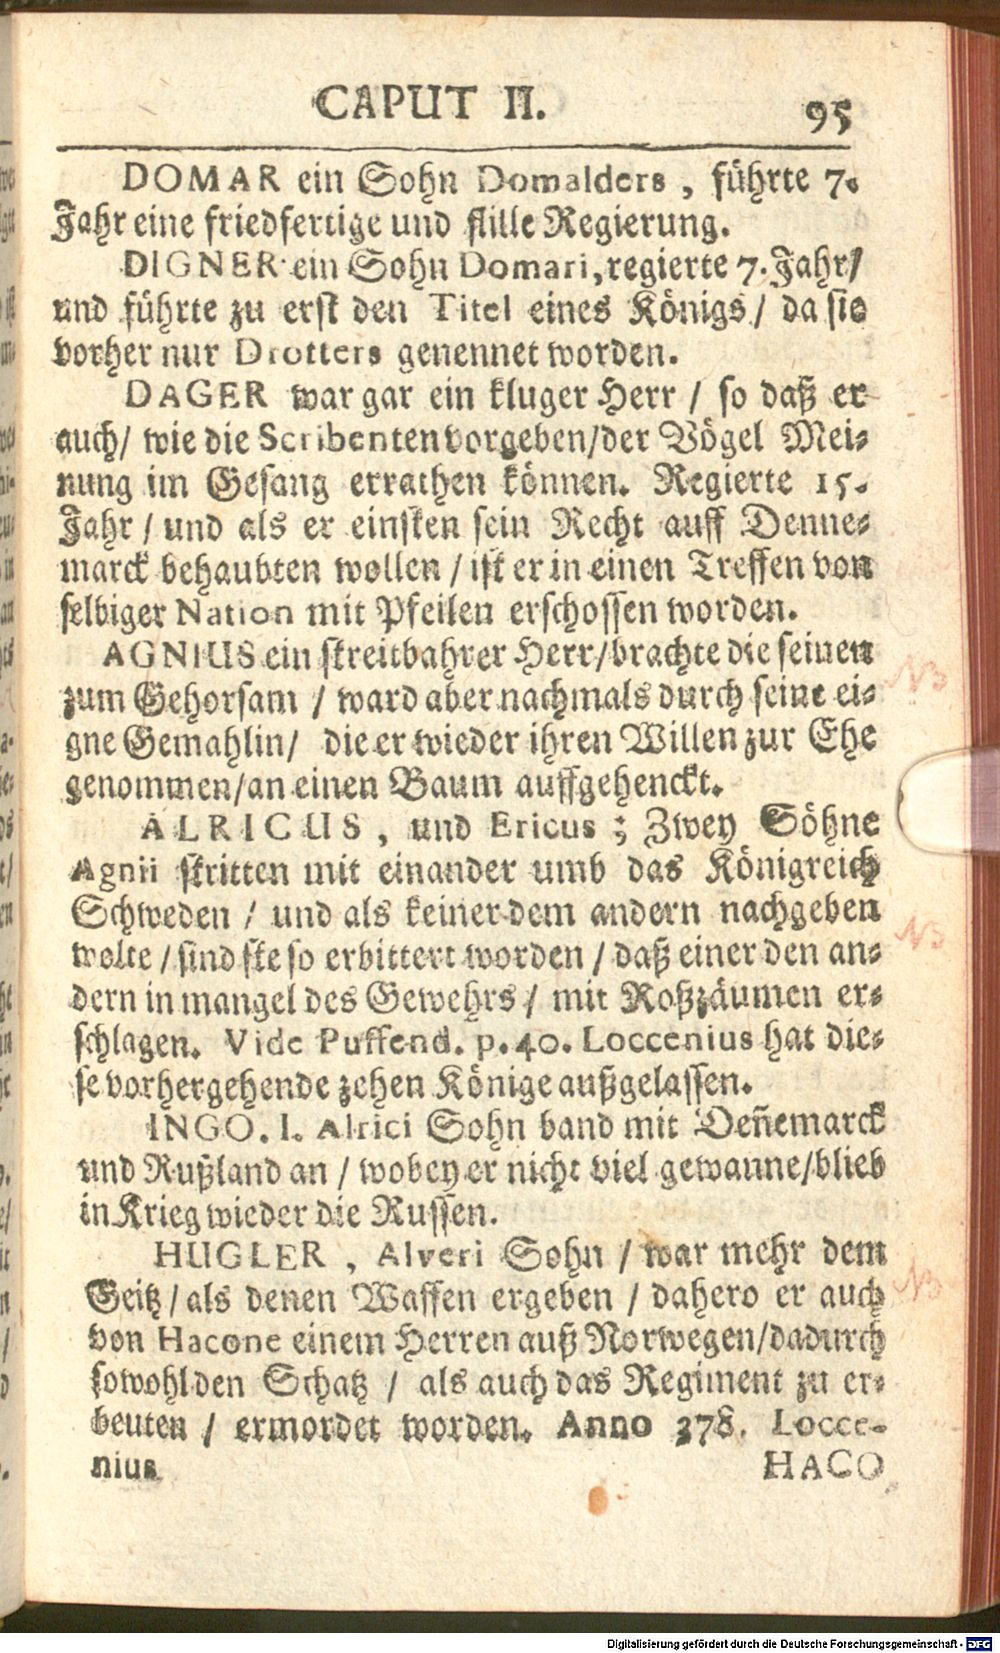 CAPUT II.
95
DOMAR ein Sohn Domalders, führte 7.
Jahr eine friedfertige und stille Regierung.
DIGNER ein Sohn Domari, regierte 7. Jahr/
und führte zu erst den Titel eines Königs/ da sie
vorher nur Drotters genennet worden.
DAGER war gar ein kluger Herr / so daß er
auch/ wie die Scribenten vorgeben/der Vögel Mei-
nung im Gesang errathen können. Regierte 15.
Jahr / und als er einsten sein Recht auff Denne-
marck behaubten wollen / ist er in einen Treffen von
selbiger Nation mit Pfeilen erschossen worden.
AGNIUS ein streitbahrer Herr/brachte die seinen
zum Gehorsam / ward aber nachmals durch seine ei-
gne Gemahlin/ die er wieder ihren Willen zur Ehe
genommen/an einen Baum auffgehenckt.
ALRICUS, und Ericus; Zwey Söhne
Agnii stritten mit einander umb das Königreich
Schweden / und als keiner dem andern nachgeben
wolte / sind sie so erbittert worden / daß einer den an-
dern in mangel des Gewehrs / mit Roßzäumen er-
schlagen. Vide Puffend. p. 40. Loccenius hat die-
se vorhergehende zehen Könige außgelassen.
INGO. I. Alrici Sohn band mit Deñemarck
und Rußland an / wobey er nicht viel gewanne/blieb
in Krieg wieder die Russen.
HUGLER, Alveri Sohn / war mehr dem
Geitz / als denen Waffen ergeben / dahero er auch
von Hacone einem Herren auß Norwegen/dadurch
sowohl den Schatz / als auch das Regiment zu er-
beuten / ermordet worden. Anno 378. Locce-
nius
HACO
NB
NB
NB
Digitalisierung gefördert durch die Deutsche Forschungsgemeinschaft - DFG